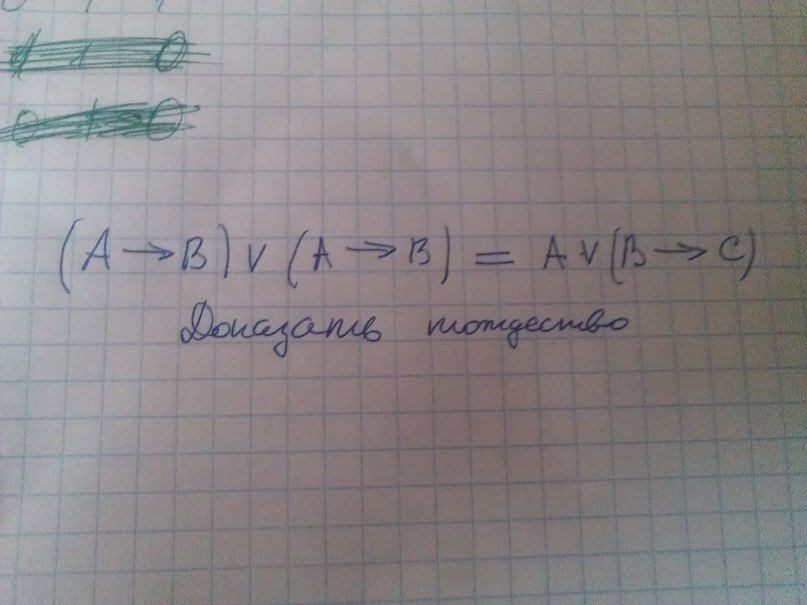 (A → B) ∨ (A → B) = A ∨ (B → C)
Доказать тождество